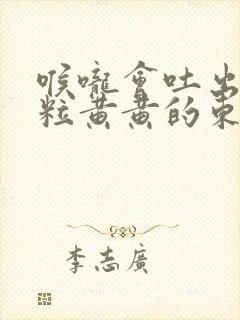 喉嚨會吐出
粒黃黃的東
李志廣